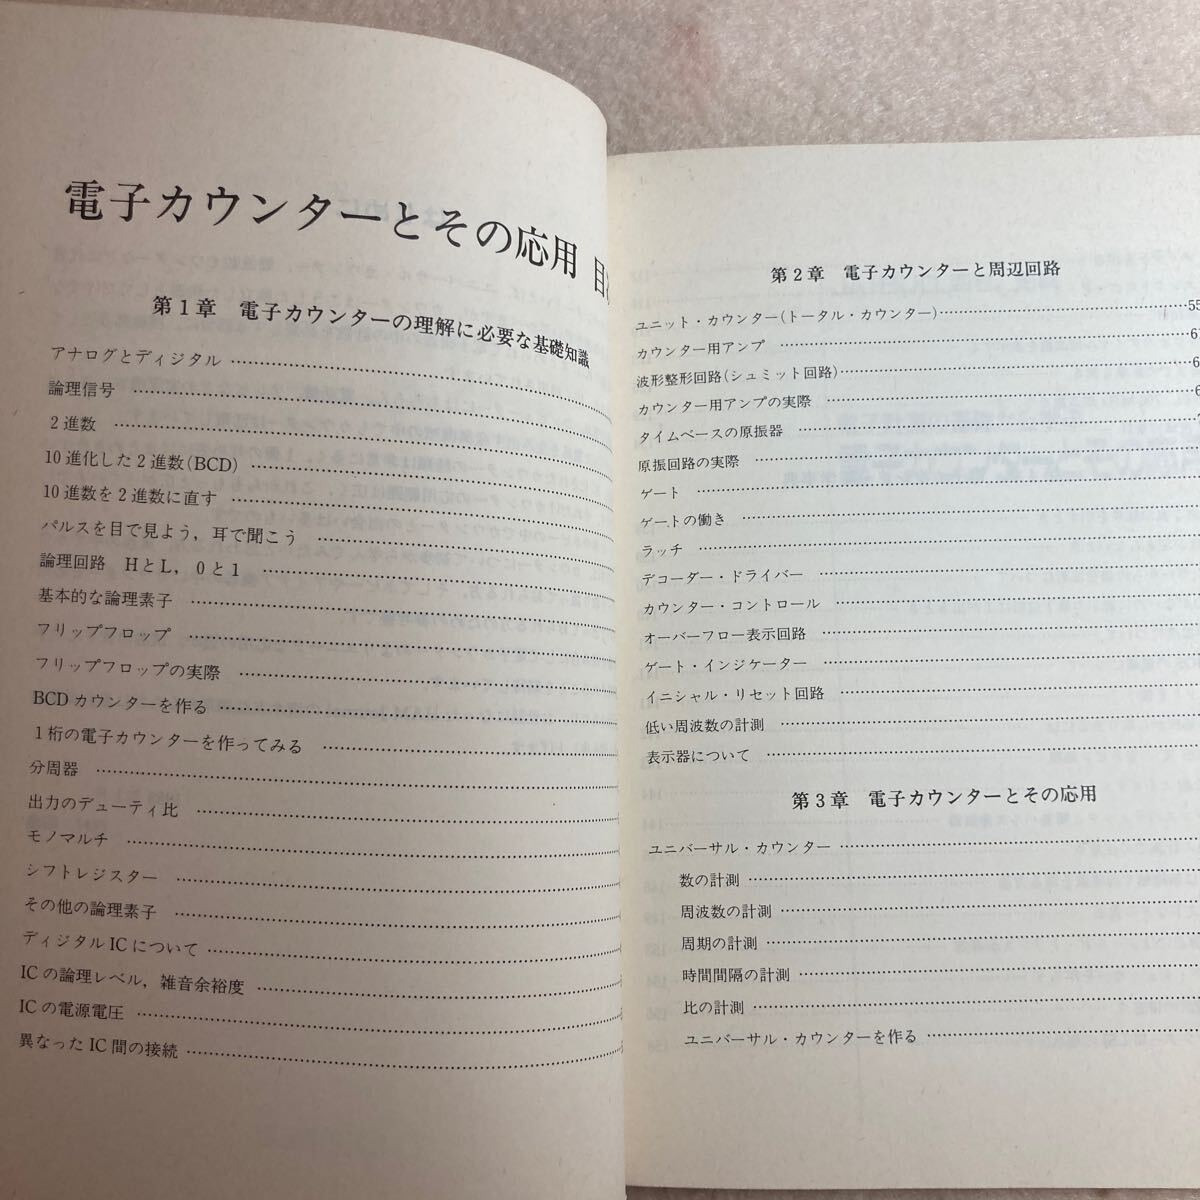 電子カウンターとその応用 目
第1章 電子カウンターの理解に必要な基礎知識
アナログとディジタル
論理信号
2進数
10進化した2進数(BCD)
10進数を2進数に直す
パルスを目で見よう，耳で聞こう
論理回路 HとL，0と1
基本的な論理素子
フリップフロップ
フリップフロップの実際
BCDカウンターを作る
1桁の電子カウンターを作ってみる
分周器
出力のデューティ比
モノマルチ
シフトレジスター
その他の論理素子
ディジタルICについて
ICの論理レベル，雑音余裕度
ICの電源電圧
異なったIC間の接続
第2章 電子カウンターと周辺回路
ユニット・カウンター(トータル・カウンター)……55
カウンター用アンプ
波形整形回路(シュミット回路)
カウンター用アンプの実際
タイムベースの原振器
原振回路の実際
ゲート
ゲートの働き
ラッチ
デコーダー・ドライバー
カウンター・コントロール
オーバーフロー表示回路
ゲート・インジケーター
イニシャル・リセット回路
低い周波数の計測
表示器について
第3章 電子カウンターとその応用
ユニバーサル・カウンター
数の計測
周波数の計測
周期の計測
時間間隔の計測
比の計測
ユニバーサル・カウンターを作る